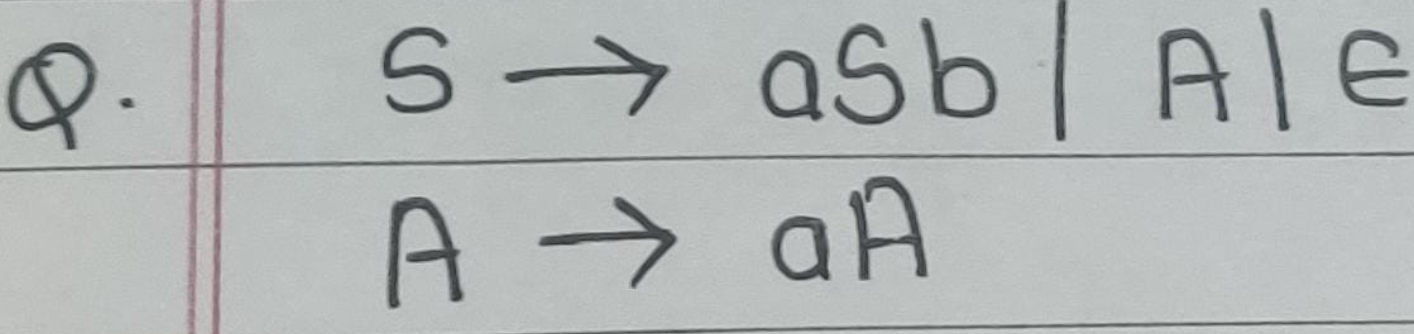 Q. S → aSb | A | ∈
A → aA